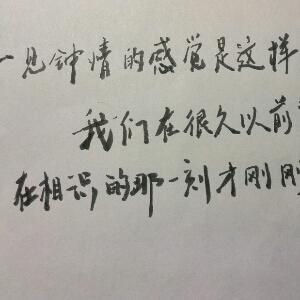 一见钟情的感觉是这样
我们在很久以前
在相识的那一刻才刚刚